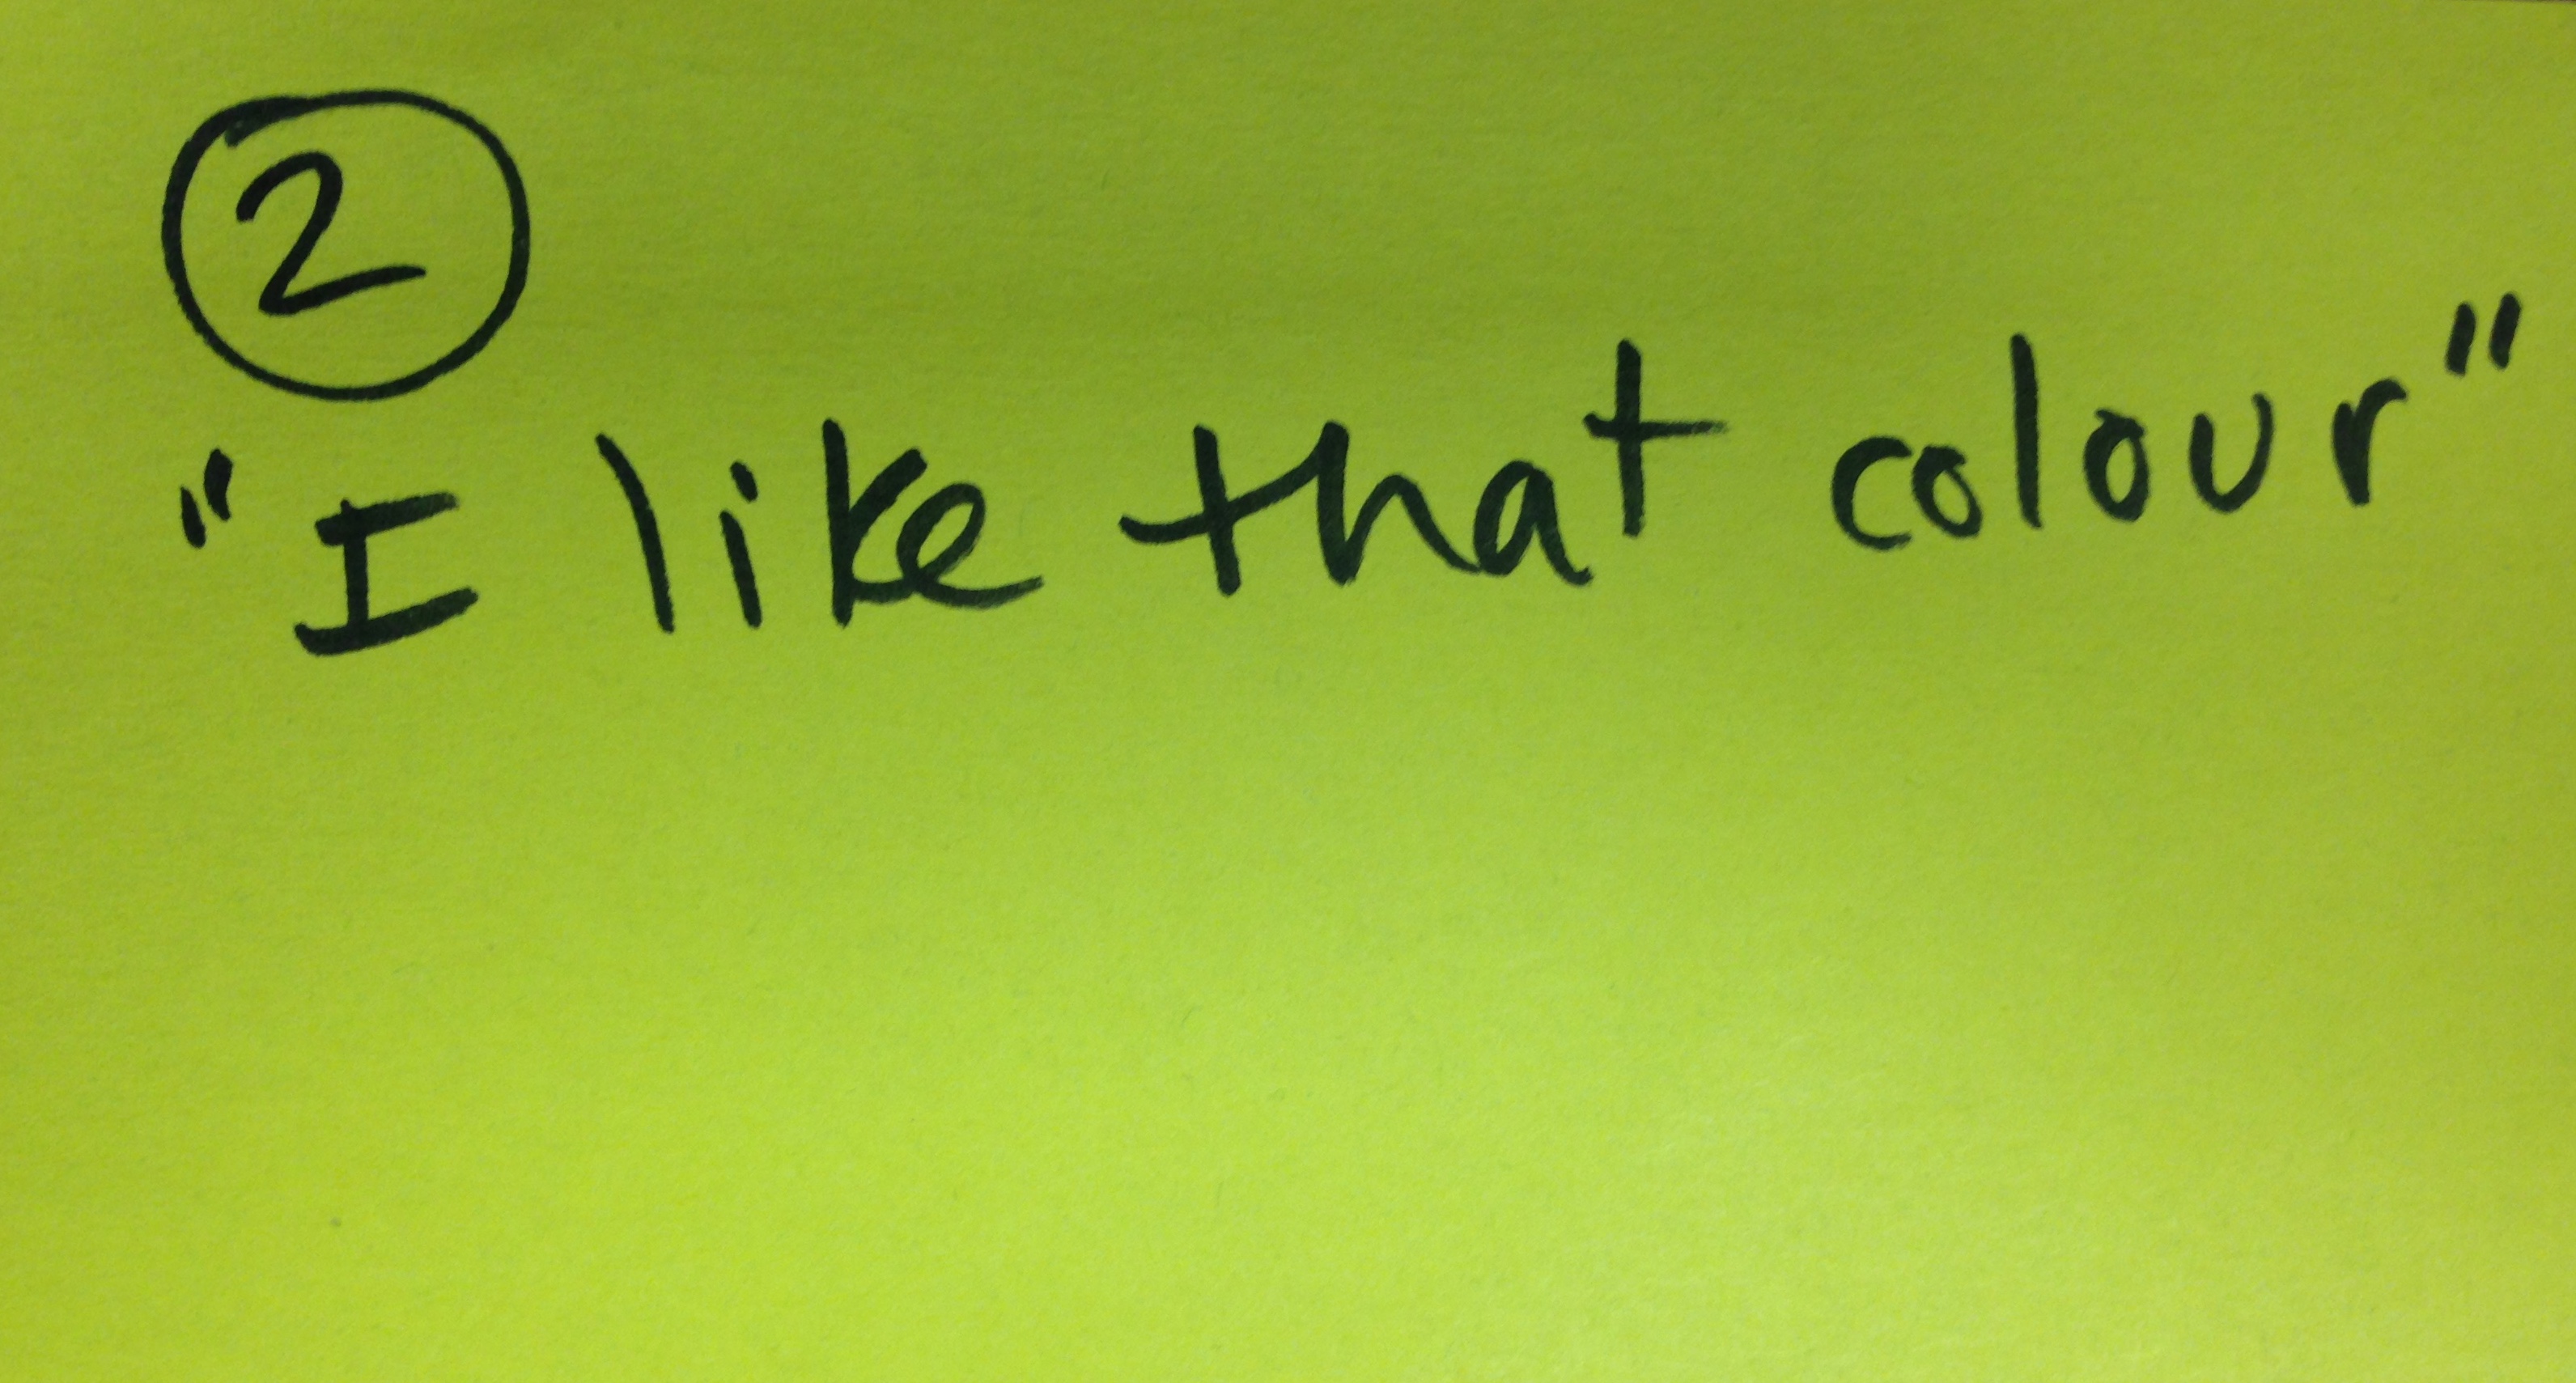 2
"I like that colour"